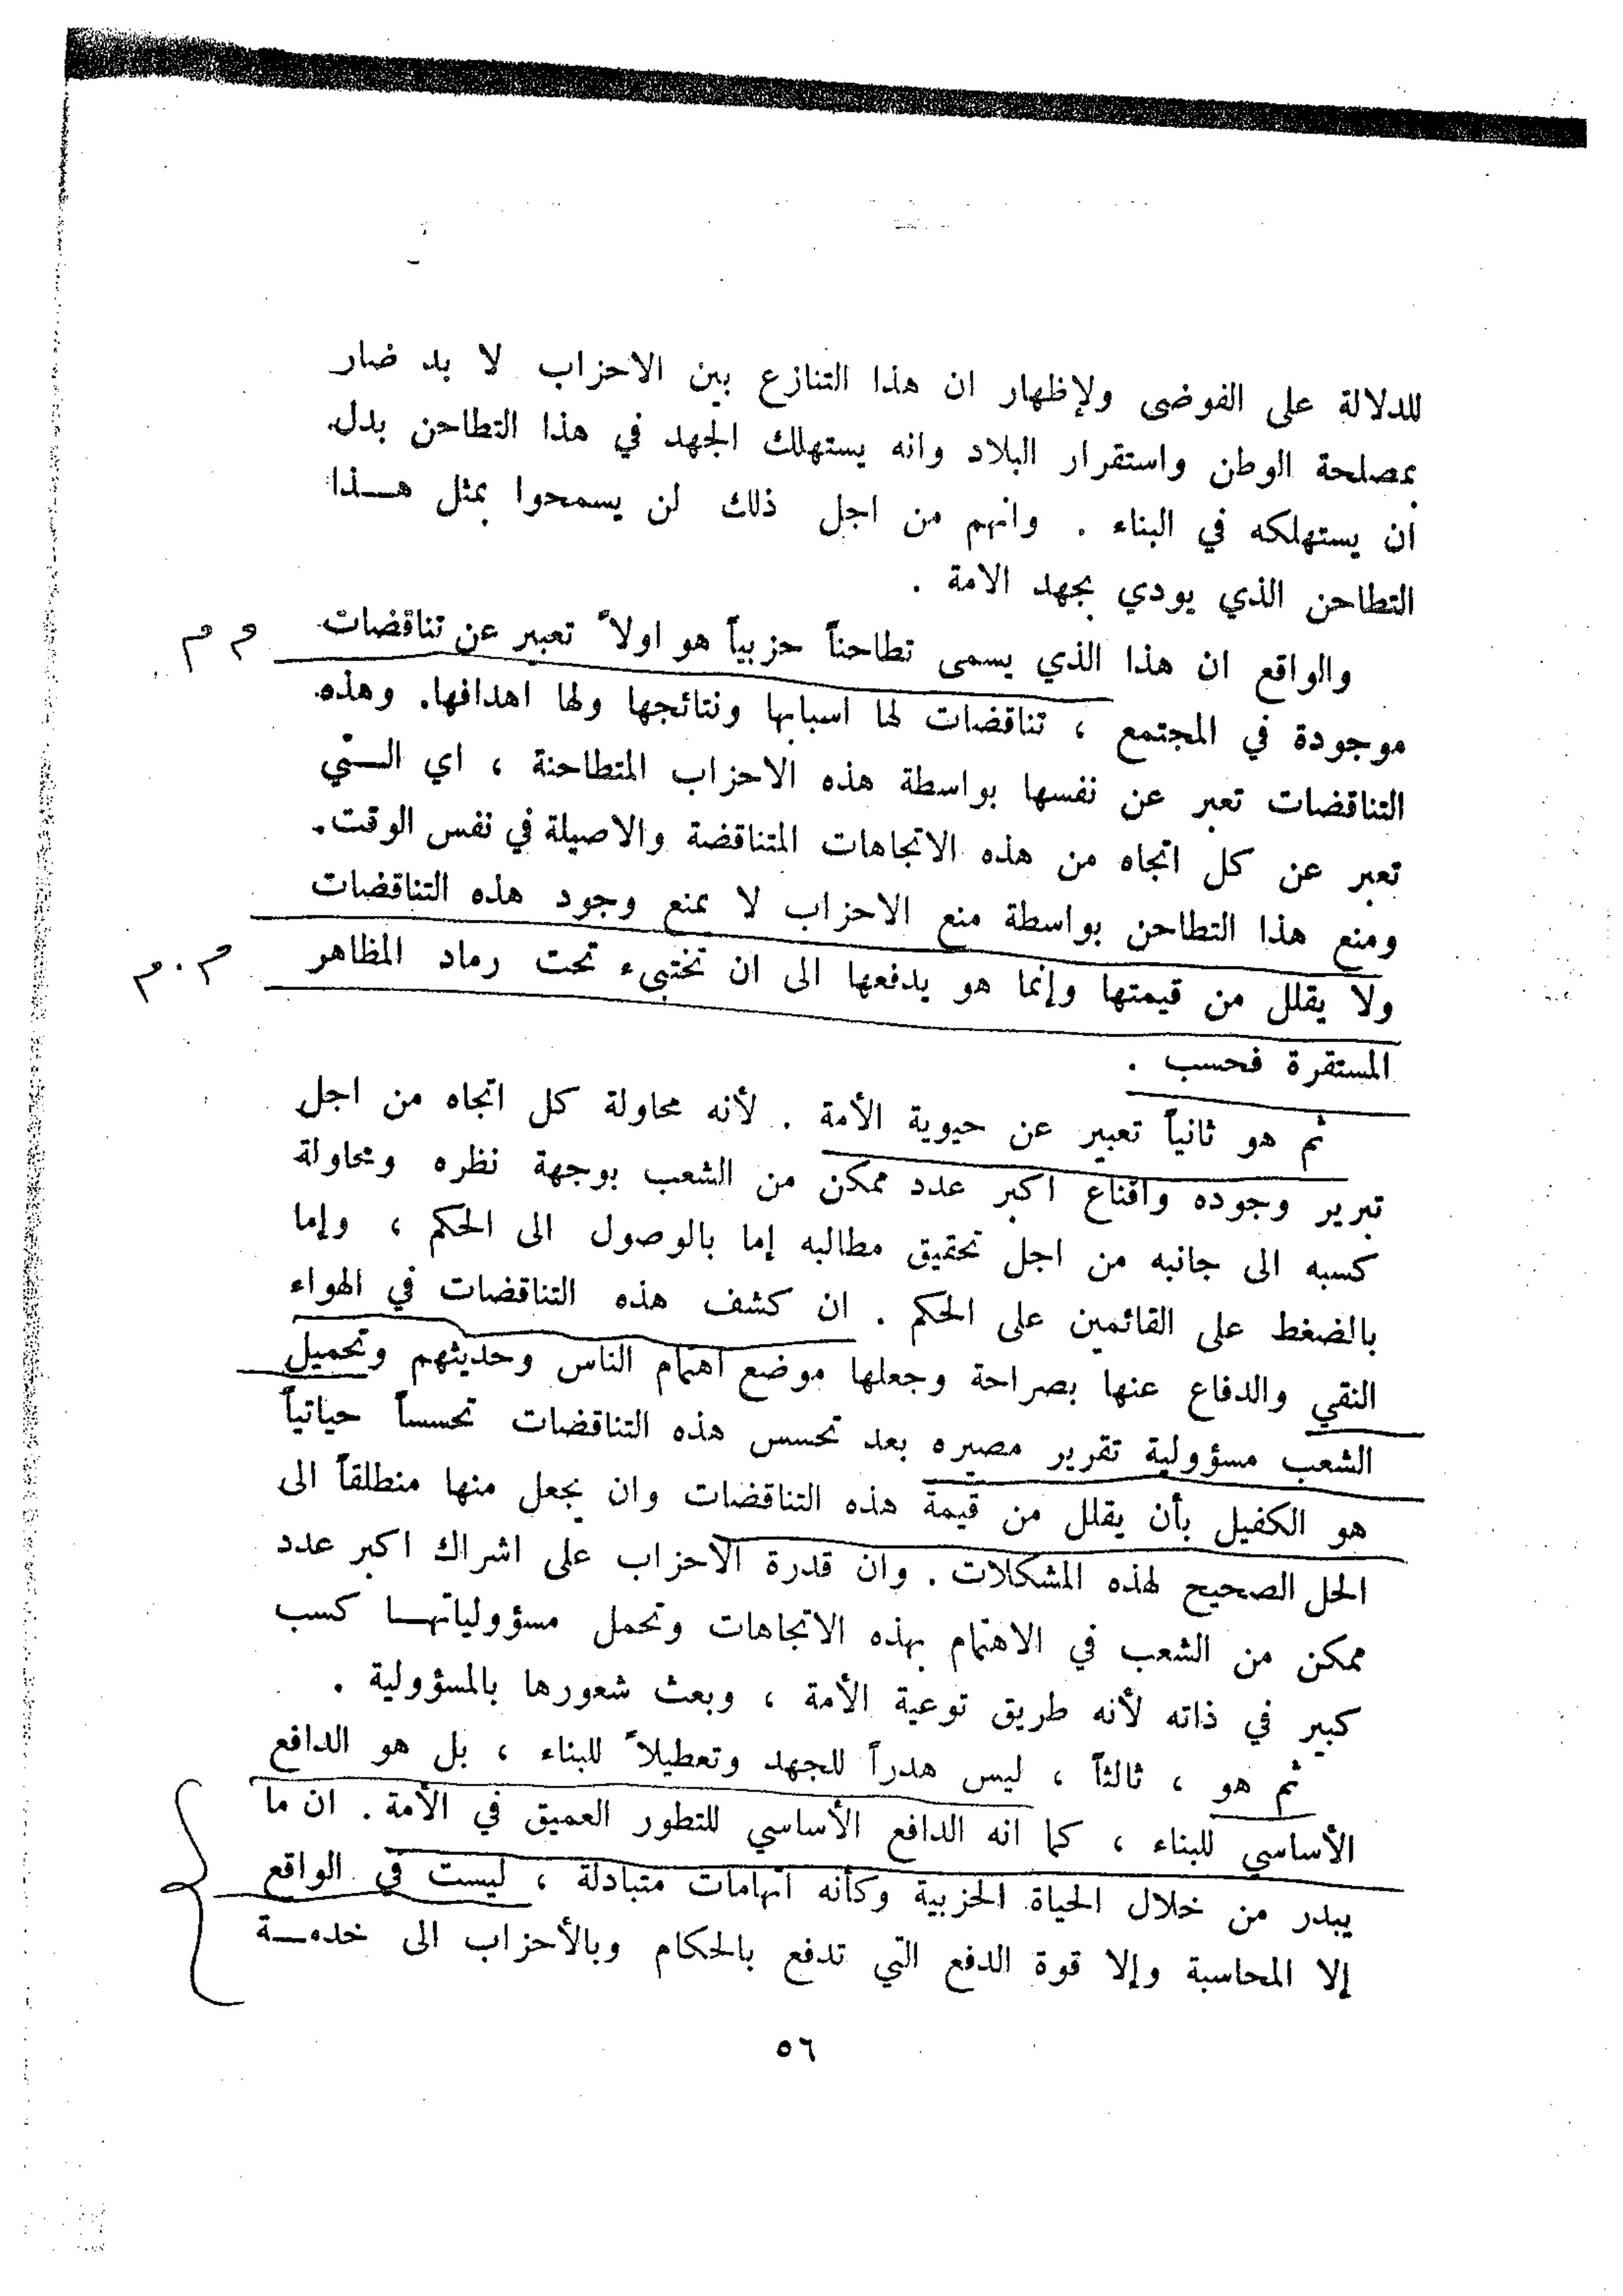 للدلالة على الفوضى ولإظهار ان هذا التنازع بين الاحزاب لا بد ضار
بمصلحة الوطن واستقرار البلاد وانه يستهلك الجهد في هذا التطاحن بدل
ان يستهلكه في البناء . وانهم من اجل ذلك لن يسمحوا بمثل هـذا
التطاحن الذي يودي بجهد الامة .
والواقع ان هذا الذي يسمى تطاحناً حزبياً هو اولاً تعبير عن تناقضات
م م
موجودة في المجتمع ، تناقضات لها اسبابها ونتائجها ولها اهدافها. وهذه
التناقضات تعبر عن نفسها بواسطة هذه الاحزاب المتطاحنة ، اي الـتي
تعبر عن كل اتجاه من هذه الاتجاهات المتناقضة والاصيلة في نفس الوقت.
ومنع هذا التطاحن بواسطة منع الاحزاب لا يمنع وجود هذه التناقضات
ولا يقلل من قيمتها وإنما هو يدفعها الى ان تختبىء تحت رماد المظاهر
م . م
المستقرة فحسب .
ثم هو ثانياً تعبير عن حيوية الأمة . لأنه محاولة كل اتجاه من اجل
تبرير وجوده واقناع اكبر عدد ممكن من الشعب بوجهة نظره ومحاولة
كسبه الى جانبه من اجل تحقيق مطالبه إما بالوصول الى الحكم ، وإما
بالضغط على القائمين على الحكم . ان كشف هذه التناقضات في الهواء
النقي والدفاع عنها بصراحة وجعلها موضع اهتمام الناس وحديثهم وتحميل
الشعب مسؤولية تقرير مصيره بعد تحسس هذه التناقضات تحسساً حياتياً
هو الكفيل بأن يقلل من قيمة هذه التناقضات وان يجعل منها منطلقاً الى
الحل الصحيح لهذه المشكلات . وان قدرة الاحزاب على اشراك اكبر عدد
ممكن من الشعب في الاهتمام بهذه الاتجاهات وتحمل مسؤولياتهـا كسب
كبير في ذاته لأنه طريق توعية الأمة ، وبعث شعورها بالمسؤولية .
ثم هو ، ثالثاً ، ليس هدراً للجهد وتعطيلاً للبناء ، بل هو الدافع
الأساسي للبناء ، كما انه الدافع الأساسي للتطور العميق في الأمة . ان ما
يبدر من خلال الحياة الحزبية وكأنه اتهامات متبادلة ، ليست في الواقع
إلا المحاسبة وإلا قوة الدفع التي تدفع بالحكام وبالأحزاب الى خدمـة
٥٦